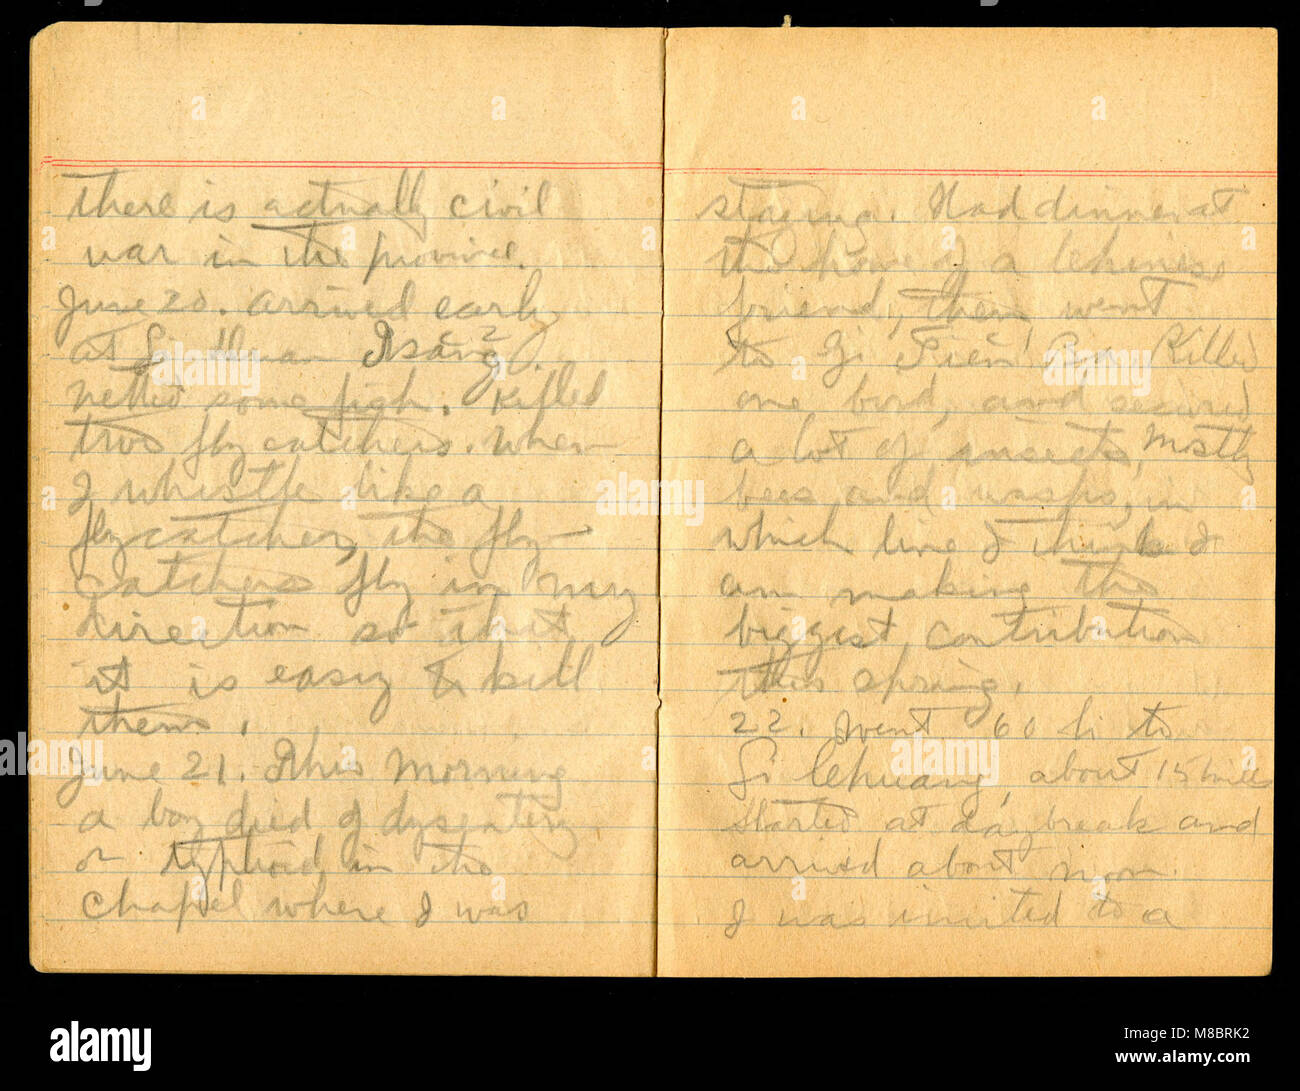 there is actually civil
war in the province.
June 20. arrived early
at Li Chuan Tsang².
netted some fish. Killed
two fly catchers. When
I whistle like a
flycatcher, the fly-
catchers fly in my
direction so that
it is easy to kill
them.
June 21. This Morning
a boy died of dysentery
or typhoid in the
chapel where I was
staying. Had dinner at
the home of a Chinese
friend, then went
to Li Tien Ba Killed
one bird, and secured
a lot of insects, Mostly
bees and wasps, in
which line I think I
am making the
biggest contribution
this spring.
22. Went 60 li to
Li Chuang, about 15 miles
Started at daybreak and
arrived about noon.
I was invited to a
alamy
Image ID: M8BRK2
www.alamy.com